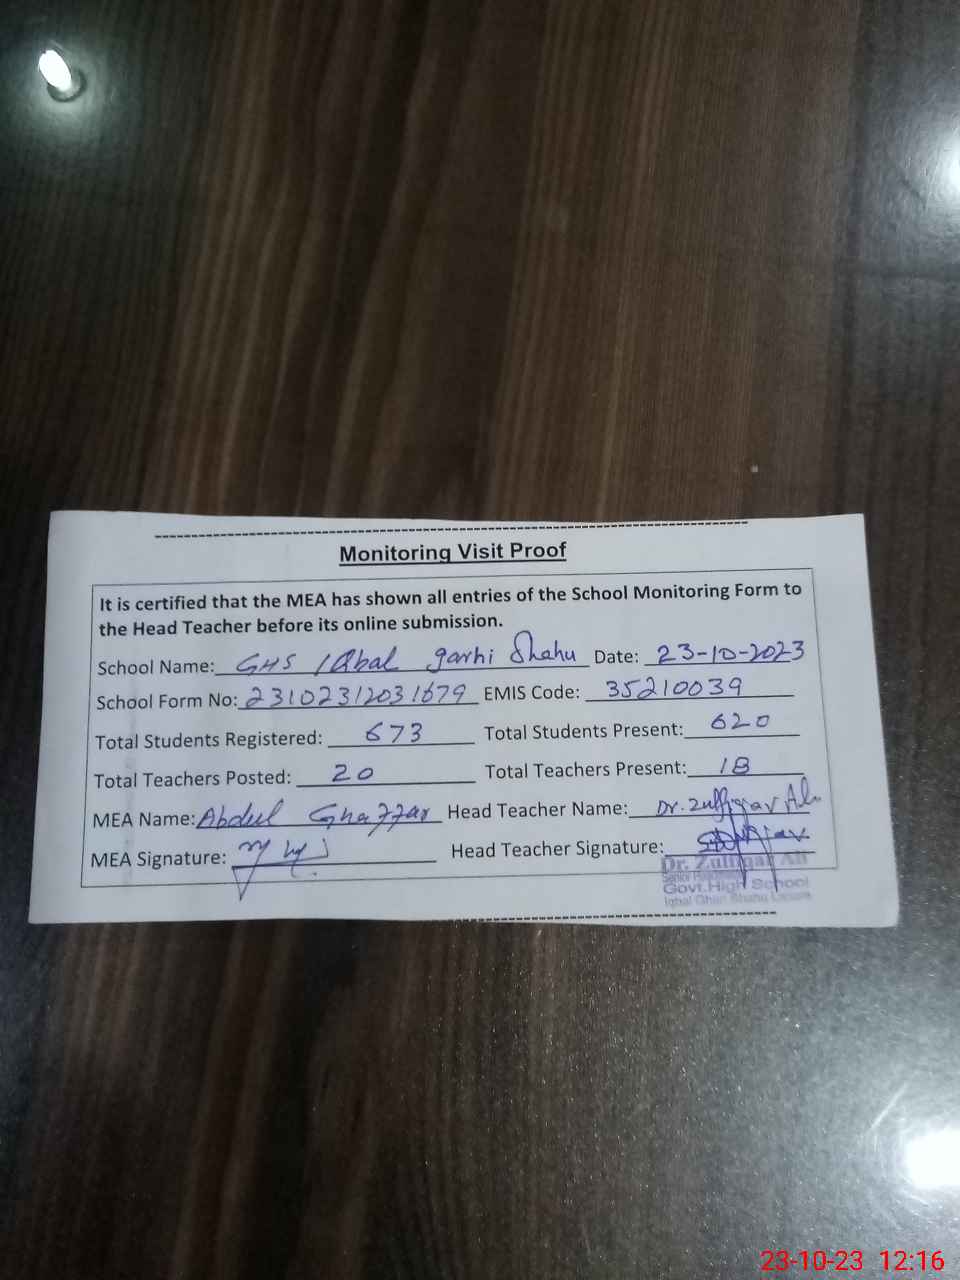 Monitoring Visit Proof
It is certified that the MEA has shown all entries of the School Monitoring Form to
the Head Teacher before its online submission.
School Name: GHS Iqbal garhi Shahu Date: 23-10-2023
School Form No: 23102312031679 EMIS Code: 35210039
Total Students Registered: 673 Total Students Present: 620
Total Teachers Posted: 20 Total Teachers Present: 18
MEA Name: Abdul Ghaffar Head Teacher Name: Dr. Zulfiqar Ali
MEA Signature: Head Teacher Signature:
Dr. Zulfiqar Ali
Senior
Govt. High School
Iqbal Ghari Shahu Lahore
23-10-23 12:16